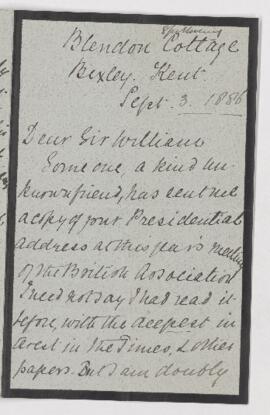 Blendon Cottage
Bexley. Kent.
Sept. 3. 1886
Dear Sir William
Some one, a kind un-
known friend, has sent me
a copy of your Presidential
address at this year's meeting
of the British Association
I need not say I had read it
before, with the deepest in
terest in The Times, & other
papers. But I am doubly